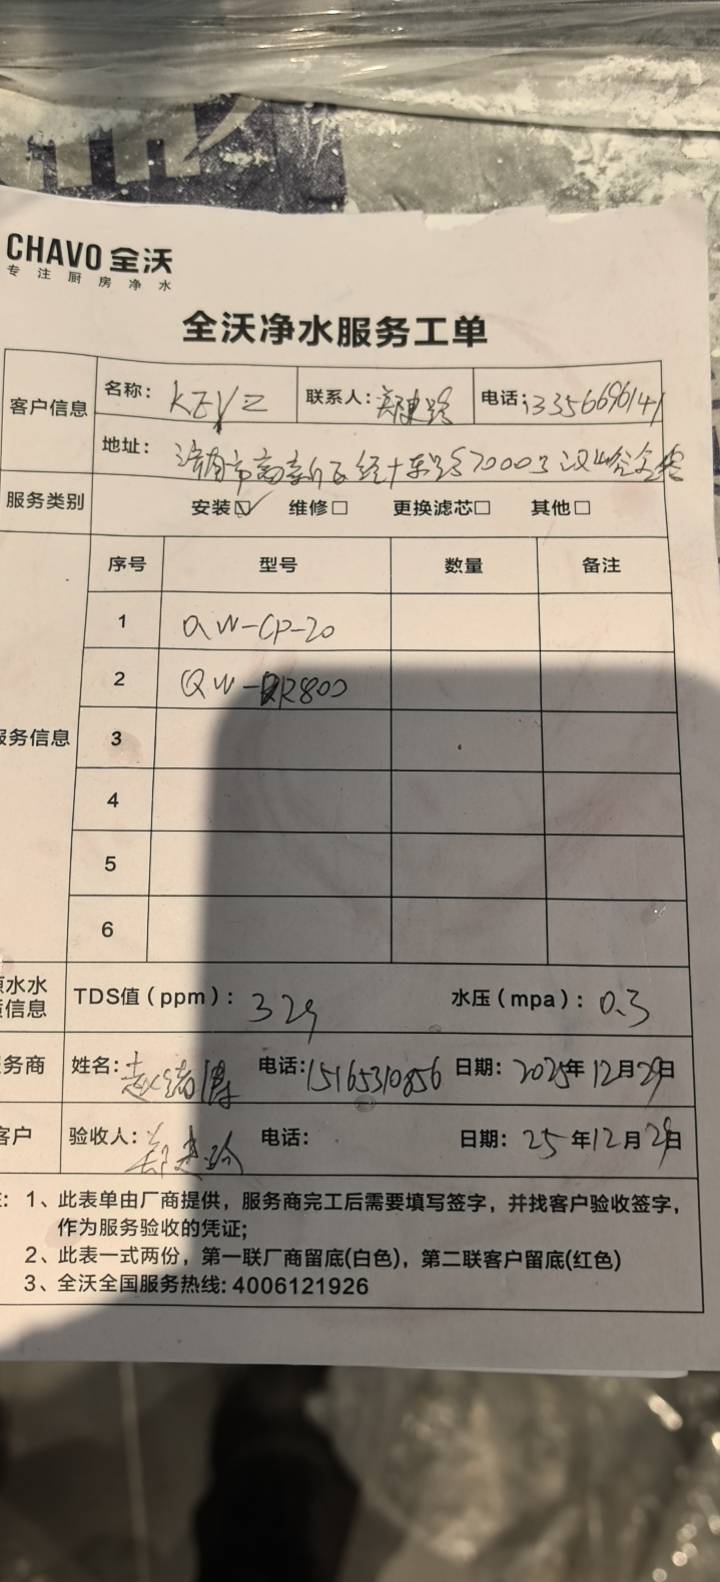 CHAVO 全沃
专注厨房净水
全沃净水服务工单
客户信息 名称: KFVZ 联系人: 电话: 13356696141
地址: 济南市高新区经十东路7000号汉峪金谷
服务类别 安装☑ 维修□ 更换滤芯□ 其他□
序号 型号 数量 备注
1 QW-CP-20
2 QW-R800
务信息 3
4
5
6
水水
信息 TDS值(ppm): 329 水压(mpa): 0.3
务商 姓名: 赵绪 电话: 15165310856 日期: 2025年12月29日
客户 验收人: 电话: 日期: 25年12月29日
: 1、此表单由厂商提供，服务商完工后需要填写签字，并找客户验收签字，
作为服务验收的凭证;
2、此表一式两份，第一联厂商留底(白色)，第二联客户留底(红色)
3、全沃全国服务热线: 4006121926